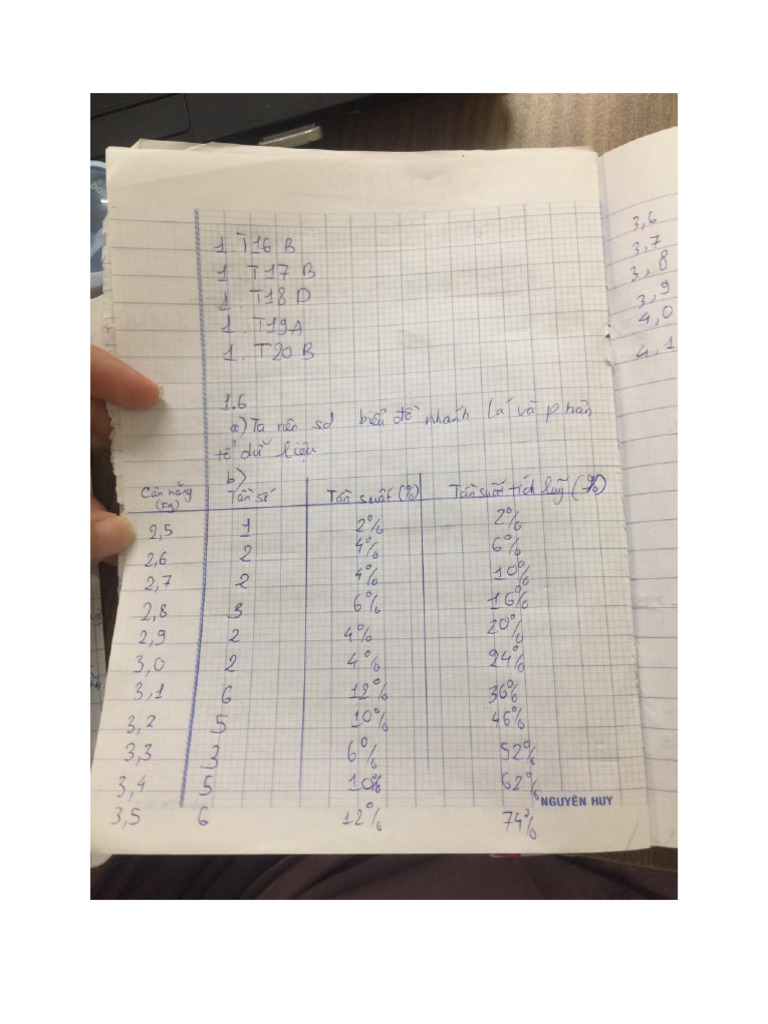 1. T16 B
1. T17 B
1. T18 D
1. T19A
1. T20 B
1.6
a) Ta nên sd biểu đồ nhánh lá và phân
tổ dữ liệu
b)
Cân nặng (kg) Tần số Tần suất (%) Tần suất tích luỹ (%)
2,5 1 2% 2%
2,6 2 4% 6%
2,7 2 4% 10%
2,8 3 6% 16%
2,9 2 4% 20%
3,0 2 4% 24%
3,1 6 12% 36%
3,2 5 10% 46%
3,3 3 6% 52%
3,4 5 10% 62%
3,5 6 12% 74%
NGUYÊN HUY
3,6
3,7
3,8
3,9
4,0
4,1